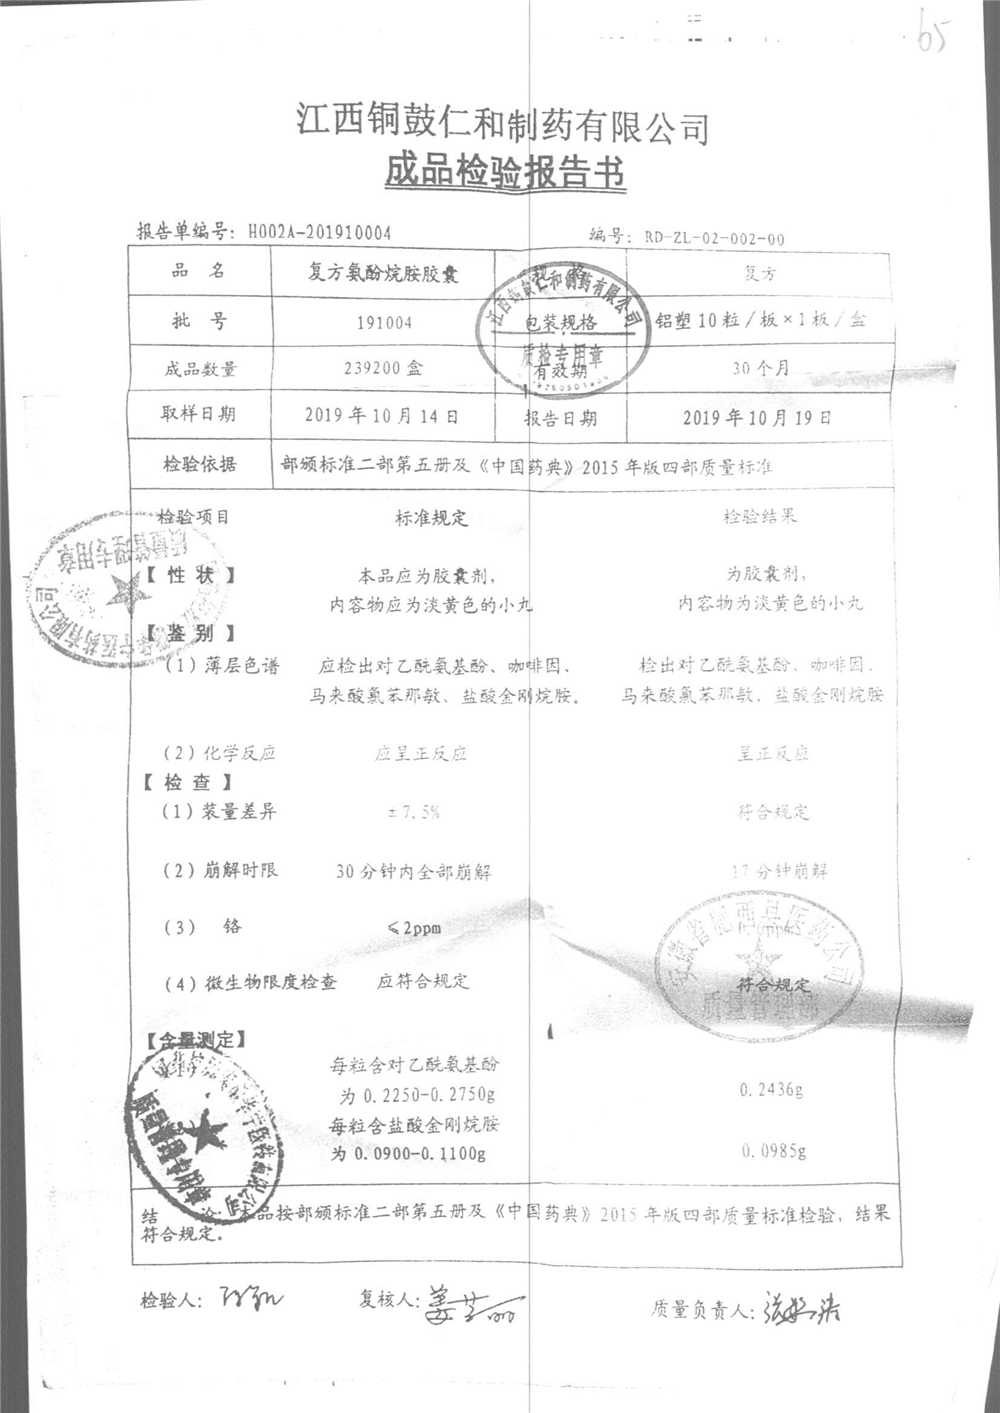 65
江西铜鼓仁和制药有限公司
成品检验报告书
报告单编号：H002A-201910004 编号：RD-ZL-02-002-00
品 名 复方氨酚烷胺胶囊 规 格 复方
批 号 191004 包装规格 铝塑10粒/板×1板/盒
成品数量 239200盒 有效期 30个月
取样日期 2019年10月14日 报告日期 2019年10月19日
检验依据 部颁标准二部第五册及《中国药典》2015年版四部质量标准
检验项目 标准规定 检验结果
【性状】 本品应为胶囊剂， 为胶囊剂，
内容物应为淡黄色的小丸 内容物为淡黄色的小丸
【鉴别】
（1）薄层色谱 应检出对乙酰氨基酚、咖啡因、 检出对乙酰氨基酚、咖啡因、
马来酸氯苯那敏、盐酸金刚烷胺。 马来酸氯苯那敏、盐酸金刚烷胺
（2）化学反应 应呈正反应 呈正反应
【检查】
（1）装量差异 ±7.5% 符合规定
（2）崩解时限 30分钟内全部崩解 17分钟崩解
（3） 铬 ≤2ppm
（4）微生物限度检查 应符合规定 符合规定
【含量测定】
每粒含对乙酰氨基酚
为0.2250-0.2750g 0.2436g
每粒含盐酸金刚烷胺
为0.0900-0.1100g 0.0985g
结 论：本品按部颁标准二部第五册及《中国药典》2015年版四部质量标准检验，结果
符合规定。
检验人： 复核人： 质量负责人：
江西铜鼓仁和制药有限公司
质检专用章
质量管理专用章
安徽省 医药公司
质量管理部
质量管理专用章